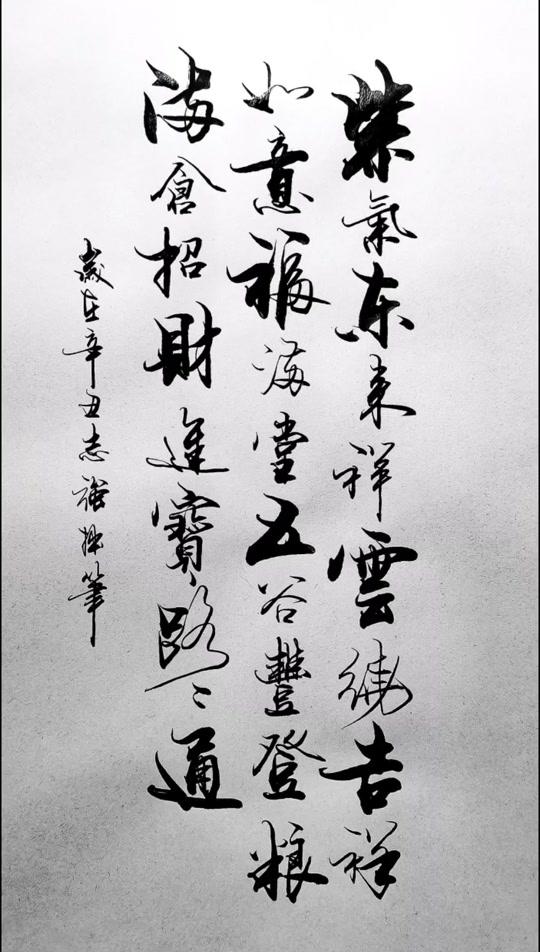 紫氣东来祥雲绕吉祥
如意福满堂五谷豐登粮
满倉招財進寶路々通
歲在辛丑志強筆